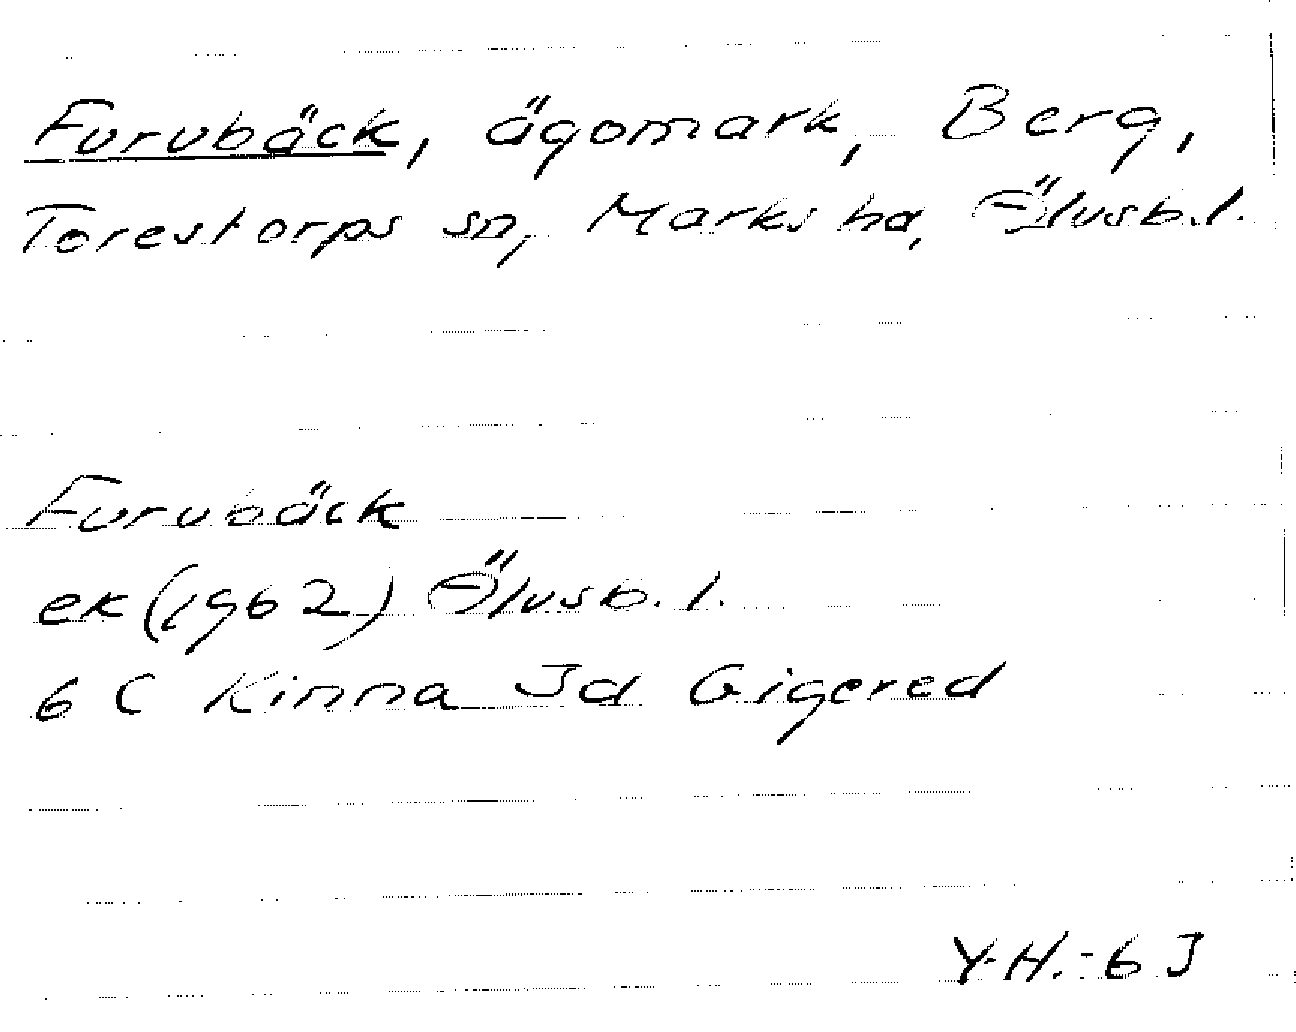 Furubäck, ägomark, Berg,
Torestorps sn, Marks hd, Älvsb.l.
Furubäck
ek (1962) Älvsb. l.
6 C Kinna Jd Gigered
Y-H.-63